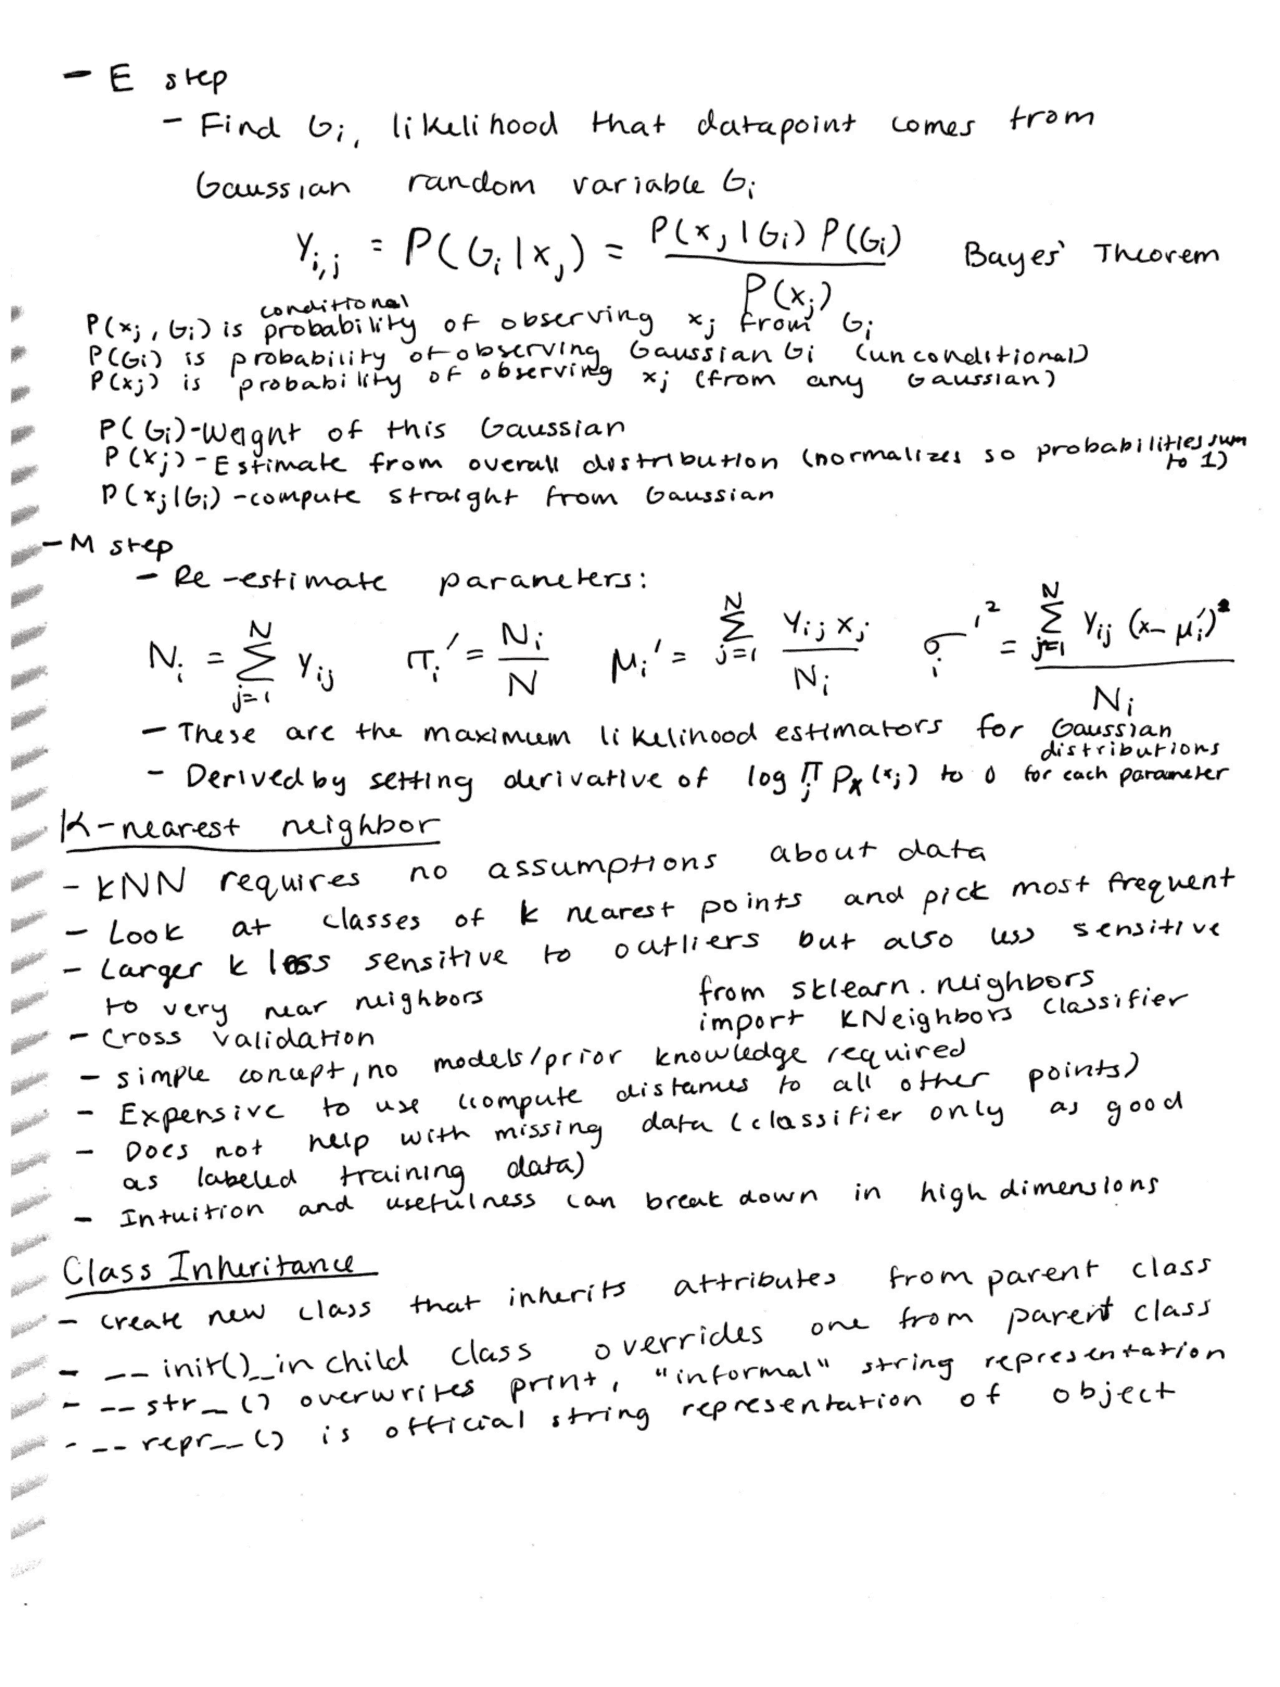 - E step
- Find Gi, likelihood that datapoint comes from
Gaussian random variable Gi
Yi,j = P(Gi|xj) = P(xj|Gi) P(Gi) / P(xj) Bayes' Theorem
conditional
P(xj, Gi) is probability of observing xj from Gi
P(Gi) is probability of observing Gaussian Gi (unconditional)
P(xj) is probability of observing xj (from any Gaussian)
P(Gi)-Weight of this Gaussian
P(xj)-Estimate from overall distribution (normalizes so probabilities sum
to 1)
P(xj|Gi)-compute straight from Gaussian
- M step
- Re-estimate parameters:
Ni = Σ_{j=1}^{N} Yij πi' = Ni / N μi' = Σ_{j=1}^{N} Yij xj / Ni σi'² = Σ_{j=1}^{N} Yij (x-μi')² / Ni
- These are the maximum likelihood estimators for Gaussian
distributions
- Derived by setting derivative of log Π_j Px(xj) to 0 for each parameter
K-nearest neighbor
- KNN requires no assumptions about data
- Look at classes of k nearest points and pick most frequent
- Larger k less sensitive to outliers but also less sensitive
to very near neighbors
from sklearn.neighbors
import KNeighbors Classifier
- Cross validation
- simple concept, no models/prior knowledge required
- Expensive to use (compute distances to all other points)
- Does not help with missing data (classifier only as good
as labeled training data)
- Intuition and usefulness can break down in high dimensions
Class Inheritance
- create new class that inherits attributes from parent class
- __init()__ in child class overrides one from parent class
- __str_() overwrites print, "informal" string representation
- __repr__() is official string representation of object